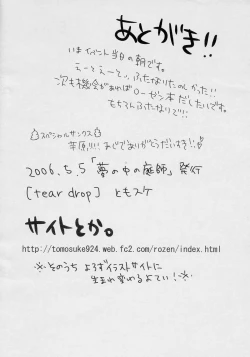 あとがき!!
いまイベント当日の朝です。
えーとえーと… ふたなりたのしかった!!
次も機会があればローゼン本だしたいです。
もちろんふたなりで!!
スペシャルサンクス
2006.5.5「夢の中の庭師」発行
[tear drop] ともスケ
サイトとか。
http://tomosuke924.web.fc2.com/rozen/index.html
※そのうち よろずイラストサイトに
生まれ変わるよてい!※